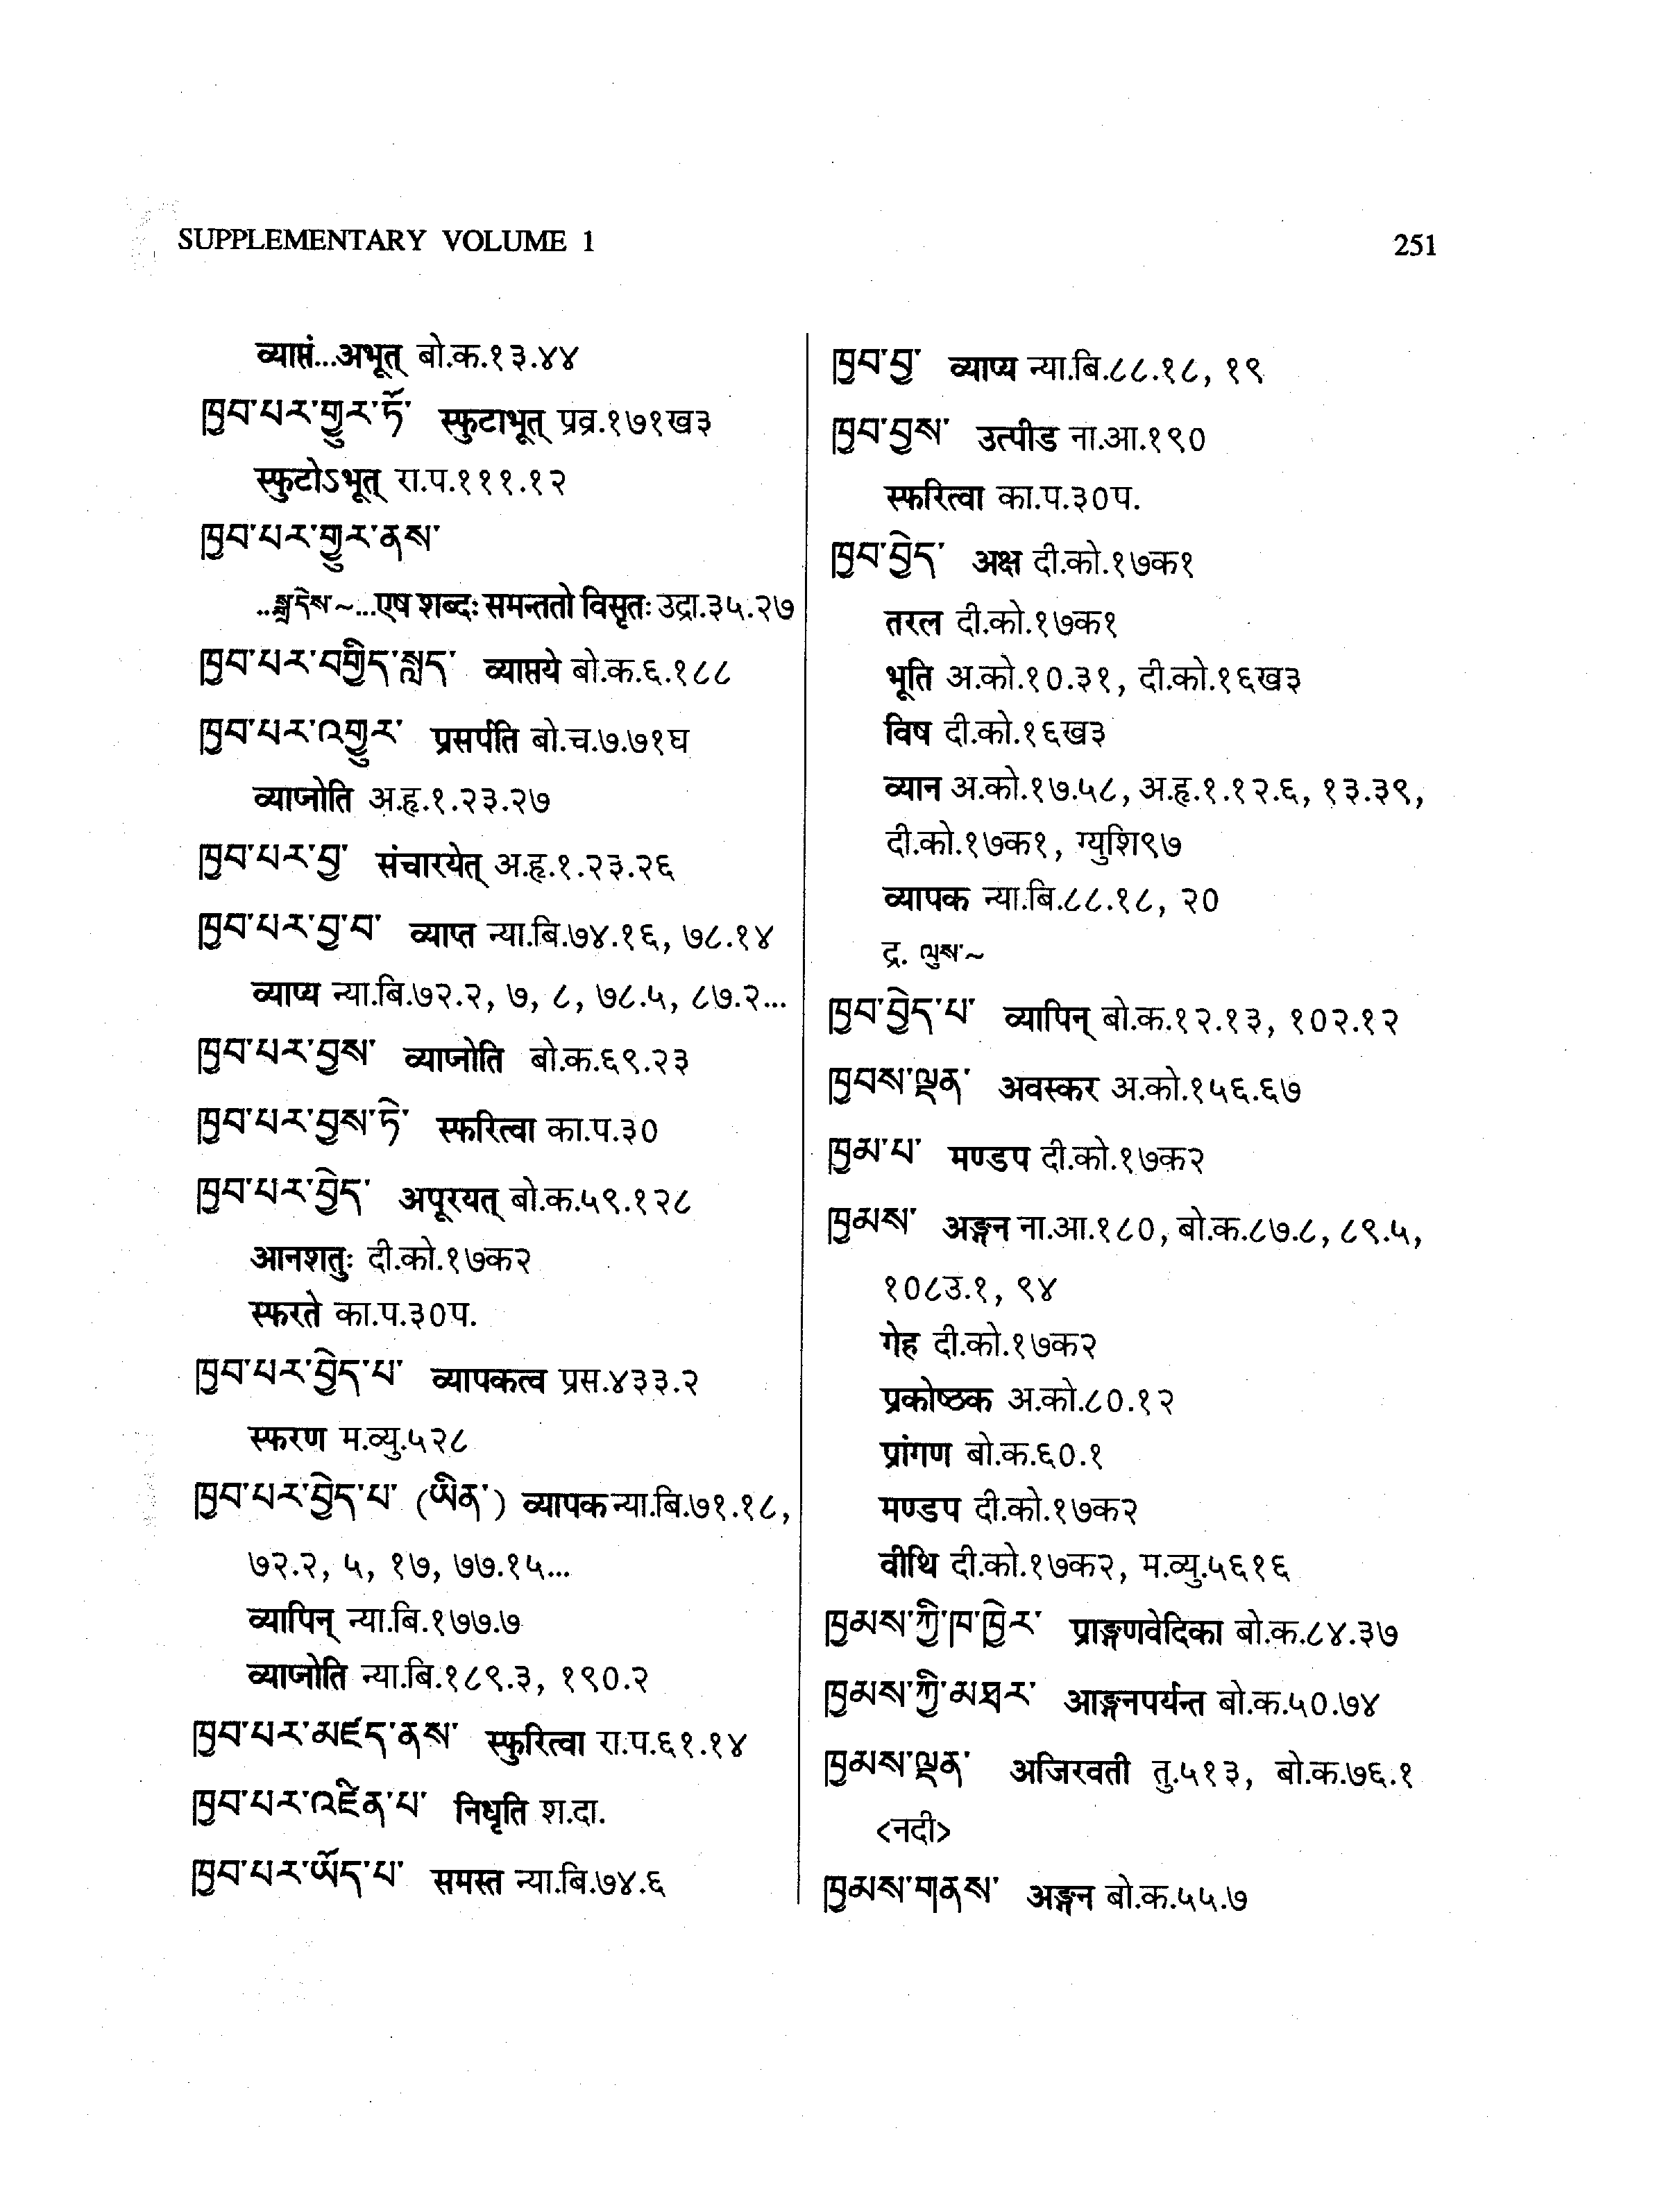 SUPPLEMENTARY VOLUME 1
251
व्याप्तं...अभूत् बो.क.१३.४४
ཁྱབ་པར་གྱུར་ཏོ་ स्फुटाभूत् प्रव्र.१७१ख३
स्फुटोऽभूत् रा.प.१११.१२
ཁྱབ་པར་གྱུར་ནས་
..སྒྲ་དེས་~...एष शब्दः समन्ततो विसृतः उद्रा.३५.२७
ཁྱབ་པར་བགྱིད་སླད་ व्याप्तये बो.क.६.१८८
ཁྱབ་པར་འགྱུར་ प्रसर्पति बो.च.७.७१घ
व्याप्नोति अ.हृ.१.२३.२७
ཁྱབ་པར་བྱ་ संचारयेत् अ.हृ.१.२३.२६
ཁྱབ་པར་བྱ་བ་ व्याप्त न्या.बि.७४.१६, ७८.१४
व्याप्य न्या.बि.७२.२, ७, ८, ७८.५, ८७.२...
ཁྱབ་པར་བྱས་ व्याप्नोति बो.क.६९.२३
ཁྱབ་པར་བྱས་ཏེ་ स्फरित्वा का.प.३०
ཁྱབ་པར་བྱེད་ अपूरयत् बो.क.५९.१२८
आनशतुः दी.को.१७क२
स्फरते का.प.३०प.
ཁྱབ་པར་བྱེད་པ་ व्यापकत्व प्रस.४३३.२
स्फरण म.व्यु.५२८
ཁྱབ་པར་བྱེད་པ་ (ཡིན་) व्यापक न्या.बि.७१.१८,
७२.२, ५, १७, ७७.१५...
व्यापिन् न्या.बि.१७७.७
व्याप्नोति न्या.बि.१८९.३, १९०.२
ཁྱབ་པར་མཛད་ནས་ स्फुरित्वा रा.प.६१.१४
ཁྱབ་པར་འཛིན་པ་ निधृति श.दा.
ཁྱབ་པར་ཡོད་པ་ समस्त न्या.बि.७४.६
ཁྱབ་བྱ་ व्याप्य न्या.बि.८८.१८, १९
ཁྱབ་བྱས་ उत्पीड ना.आ.१९०
स्फरित्वा का.प.३०प.
ཁྱབ་བྱེད་ अक्ष दी.को.१७क१
तरल दी.को.१७क१
भूति अ.को.१०.३१, दी.को.१६ख३
विष दी.को.१६ख३
व्यान अ.को.१७.५८, अ.हृ.१.१२.६, १३.३९,
दी.को.१७क१, ग्युशि९७
व्यापक न्या.बि.८८.१८, २०
द्र. ལུས་~
ཁྱབ་བྱེད་པ་ व्यापिन् बो.क.१२.१३, १०२.१२
ཁྱབས་ལྡན་ अवस्कर अ.को.१५६.६७
ཁྱམ་པ་ मण्डप दी.को.१७क२
ཁྱམས་ अङ्गन ना.आ.१८०, बो.क.८७.८, ८९.५,
१०८उ.१, ९४
गेह दी.को.१७क२
प्रकोष्ठक अ.को.८०.१२
प्रांगण बो.क.६०.१
मण्डप दी.को.१७क२
वीथि दी.को.१७क२, म.व्यु.५६१६
ཁྱམས་ཀྱི་ཁ་ཁྱེར་ प्राङ्गणवेदिका बो.क.८४.३७
ཁྱམས་ཀྱི་མཐར་ आङ्गनपर्यन्त बो.क.५०.७४
ཁྱམས་ལྡན་ अजिरवती तु.५१३, बो.क.७६.१
<नदी>
ཁྱམས་གནས་ अङ्गन बो.क.५५.७